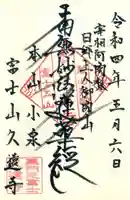 令和四年五月六日
宰相阿闍梨
日郷上人御開山
南無妙法蓮華経
本山小泉
富士山久遠寺